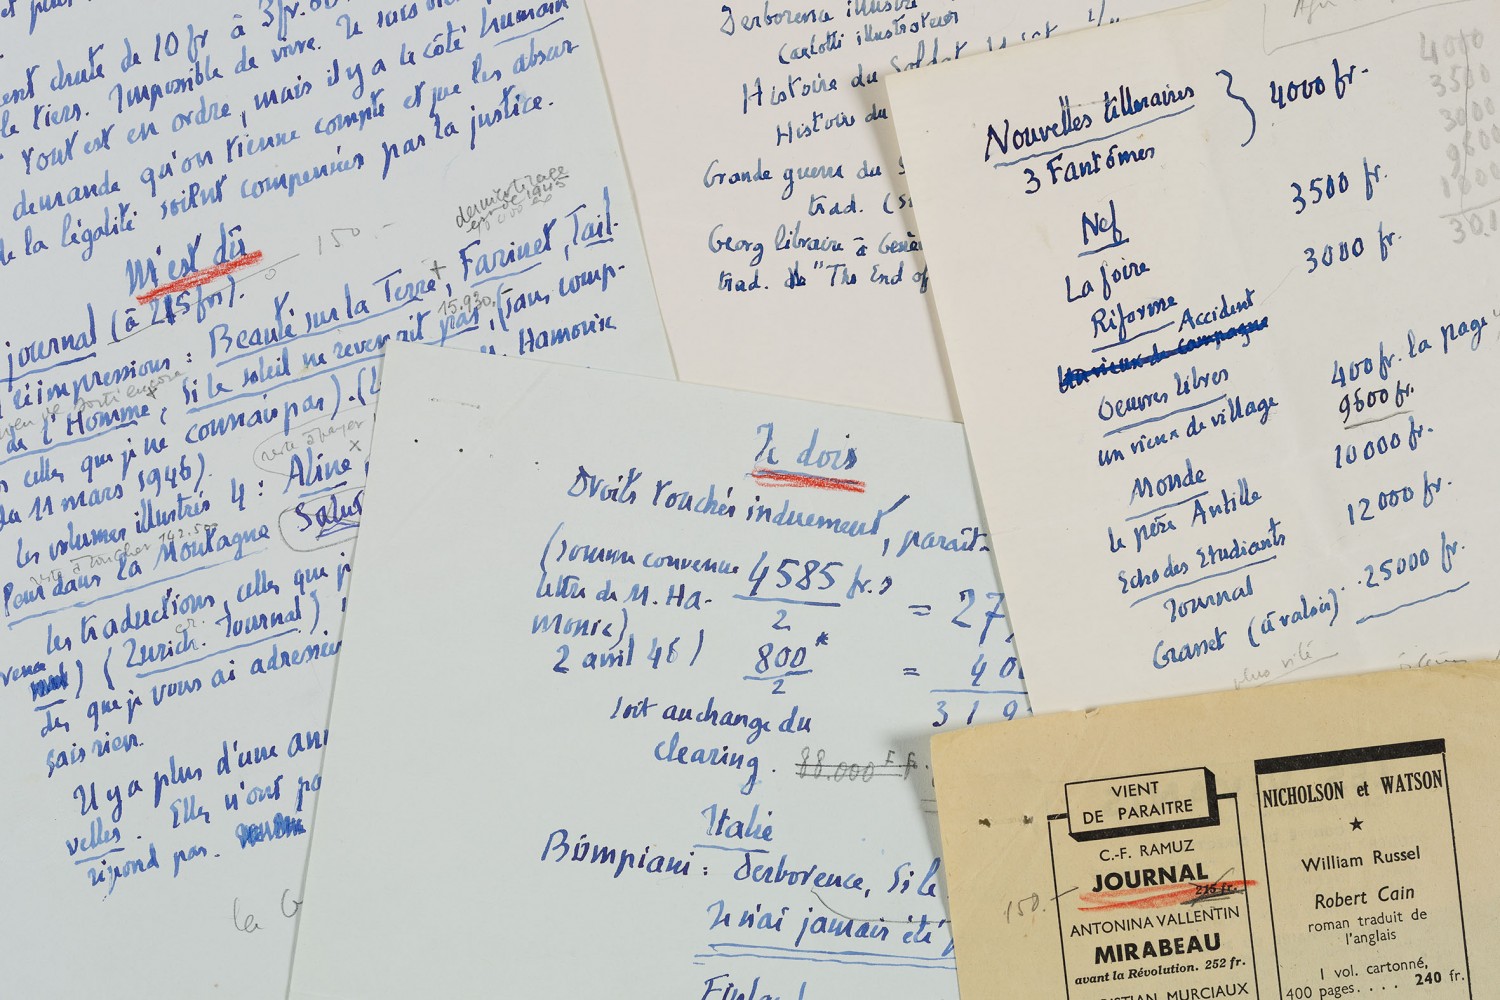 est chute de 10 fr à 3 fr.
le tiers. Impossible de vivre. Je sais
Tout est en ordre, mais il y a le côté humain
demande qu'on tienne compte et que les absur
de la légalité soient compensées par la justice.
M'est dû
150.-
journal (à 215 frs).
réimpressions : Beauté sur la Terre, Farinet, Tail-
15.930.
de l'Homme, Si le soleil ne revenait pas, (sans comp-
celles que je ne connais pas).
Hamonic
11 mars 1946).
reste à payer
les volumes illustrés 4 : Aline,
Peur dans la Montagne
Salut
les traductions, celles que j
(Zurich. Journal)
des que je vous ai adressé
sais rien.
Il y a plus d'une an
velles. Elles n'ont pa
répond pas.
Derborence illustré
Carlotti illustrateur
Histoire du Soldat
Histoire du
Grande guerre du S
trad.
Georg libraire à Genè
trad. de "The End of
Nouvelles littéraires } 4000 fr.
3 Fantômes
Nef 3500 fr.
La foire
Riforme 3000 fr.
Accident
Un vieux de campagne
Oeuvres libres 400 fr. la page
un vieux de village 9600 fr.
Monde 10000 fr.
le père Antille
Echo des Etudiants 12000 fr.
Journal
Grasset (à valoir) 25000 fr.
plus vite
4000
3500
3000
9600
Je dois
Droits touchés induement, paraît-
(somme convenue 4585 fr.s
lettre de M. Ha- 2 = 27
monic)
2 avril 46) 800* = 40
2
319
soit au change du
clearing. 88.000 F.F.
Italie
Bompiani : Derborence, Si le
Je n'ai jamais été
Finland
VIENT
DE PARAITRE
C.-F. RAMUZ
JOURNAL
215 fr.
150.-
ANTONINA VALLENTIN
MIRABEAU
avant la Révolution. 252 fr.
MURCIAUX
NICHOLSON et WATSON
★
William Russel
Robert Cain
roman traduit de
l'anglais
1 vol. cartonné,
400 pages.... 240 fr.